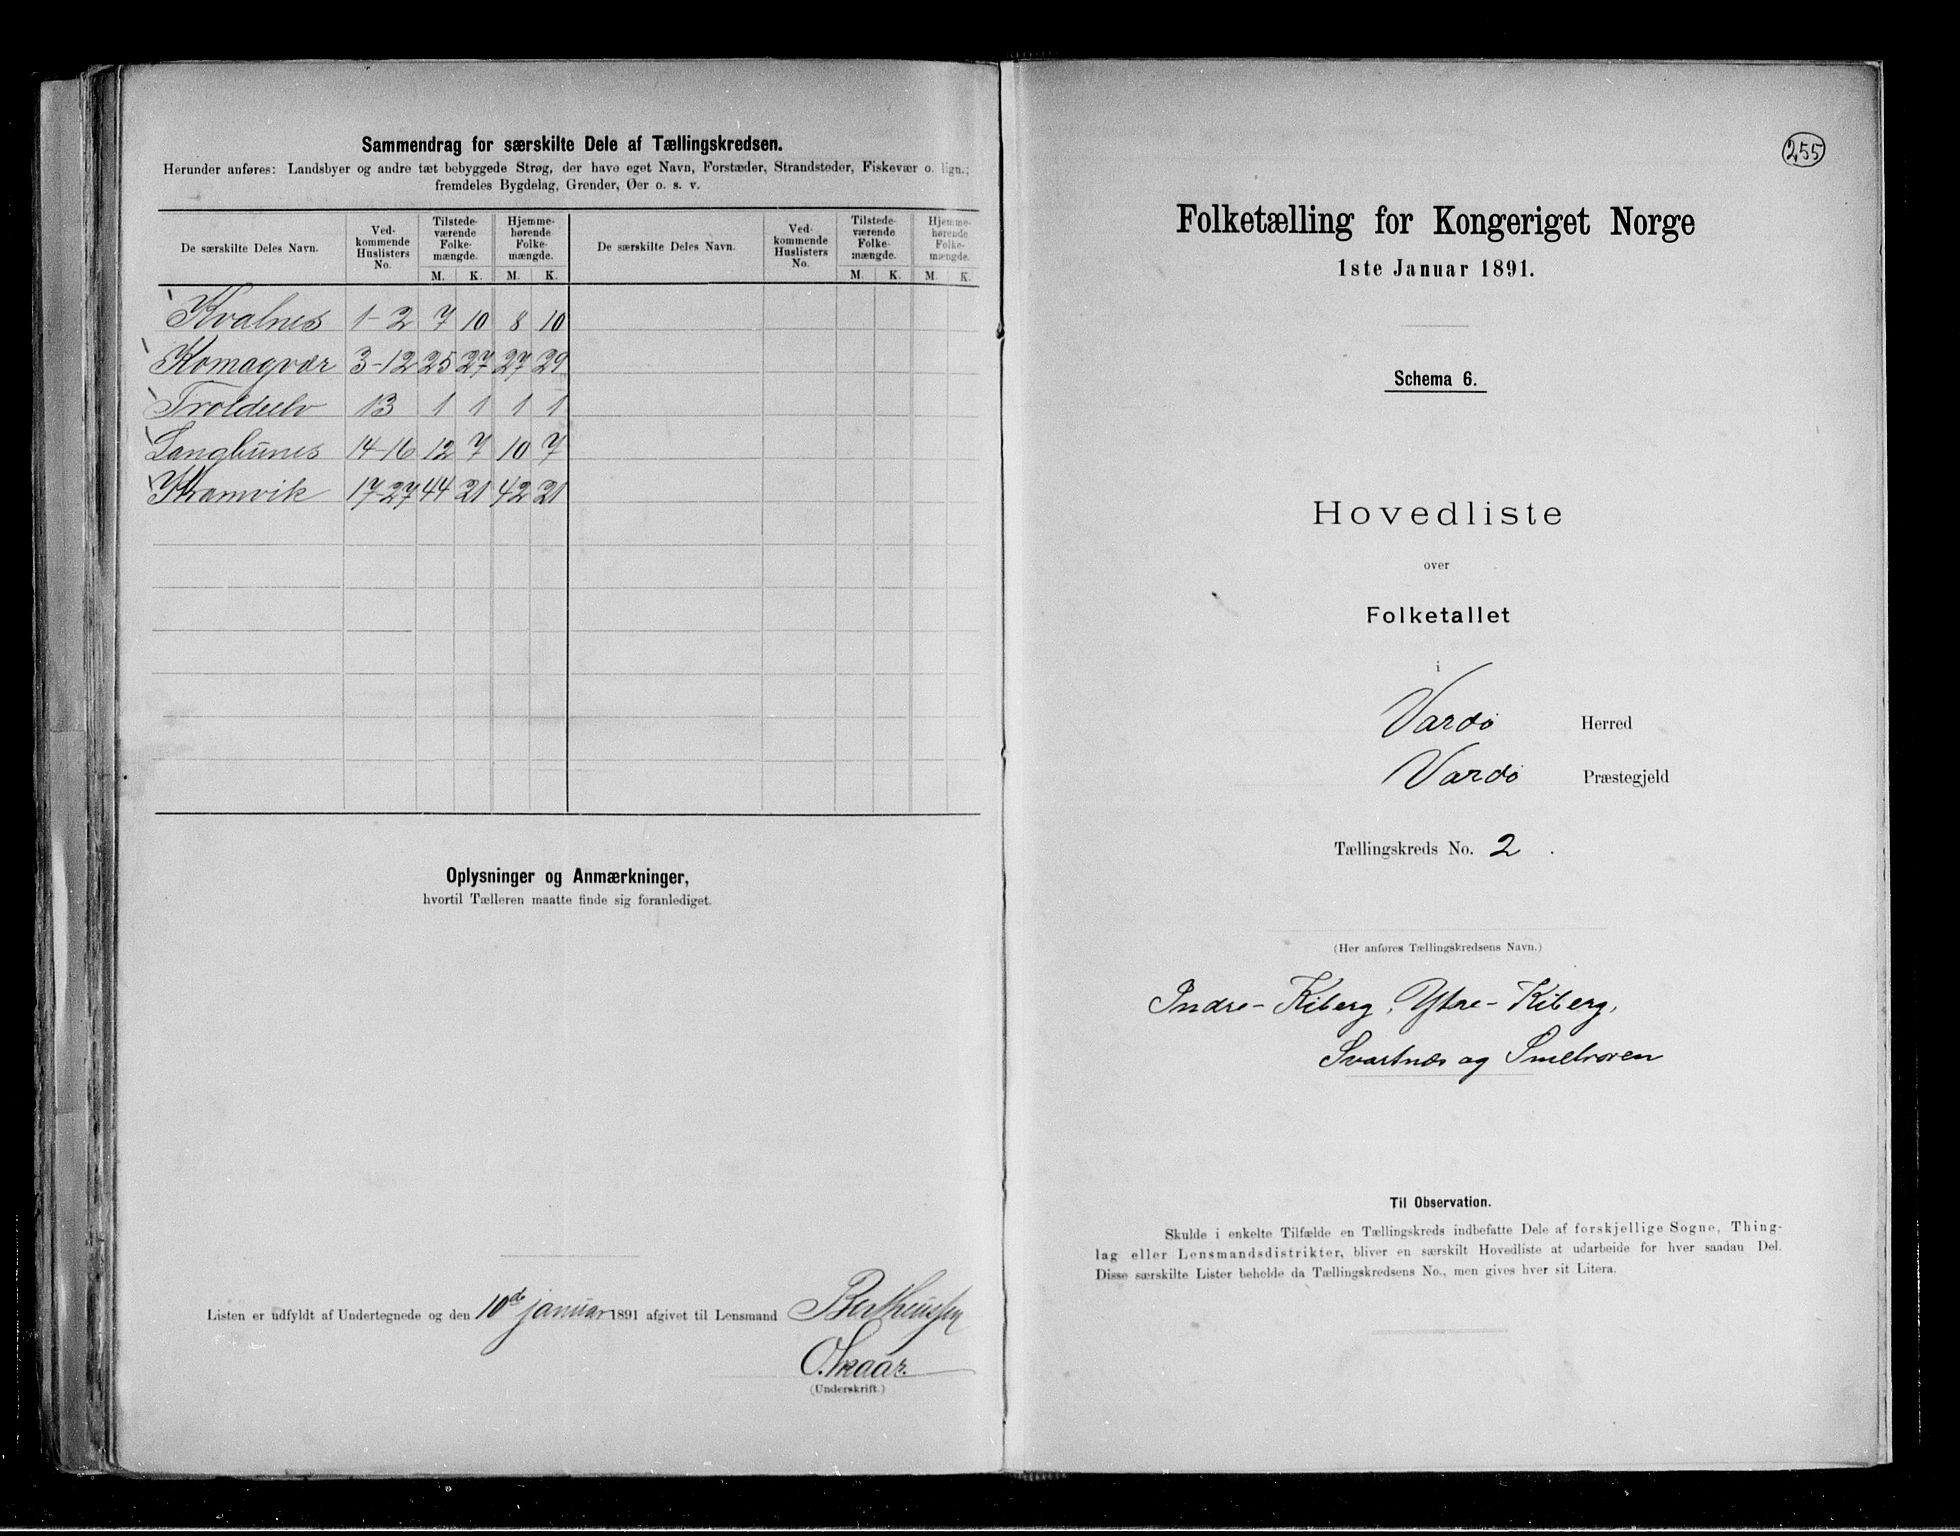 Sammendrag for særskilte Dele af Tællingskredsen.
Herunder anføres: Landsbyer og andre tæt bebyggede Strøg, der have eget Navn, Forstæder, Strandsteder, Fiskevær o. lign.;
fremdeles Bygdelag, Grender, Øer o. s. v.
De særskilte Deles Navn. | Vedkommende Huslisters No. | Tilstedeværende Folkemængde. M. K. | Hjemmehørende Folkemængde. M. K. | De særskilte Deles Navn. | Vedkommende Huslisters No. | Tilstedeværende Folkemængde. M. K. | Hjemmehørende Folkemængde. M. K.
Kvalnes 1-2 7 10 8 10
Komagvær 3-12 25 27 27 29
Troldelv 13 1 1 1 1
Langbunes 14-16 12 7 10 7
Kramvik 17-27 44 21 42 21
Oplysninger og Anmærkninger,
hvortil Tælleren maatte finde sig foranlediget.
Listen er udfyldt af Undertegnede og den 10de januar 1891 afgivet til Lensmand Bertheussen
O. Skaar.
(Underskrift.)
255
Folketælling for Kongeriget Norge
1ste Januar 1891.
Schema 6.
Hovedliste
over
Folketallet
i
Vardö Herred
Vardö Præstegjeld
Tællingskreds No. 2.
(Her anføres Tællingskredsens Navn.)
Indre-Kiberg, Ytre-Kiberg,
Svartnæs og Smelroren
Til Observation.
Skulde i enkelte Tilfælde en Tællingskreds indbefatte Dele af forskjellige Sogne, Thing-
lag eller Lensmandsdistrikter, bliver en særskilt Hovedliste at udarbeide for hver saadan Del.
Disse særskilte Lister beholde da Tællingskredsens No., men gives hver sit Litera.